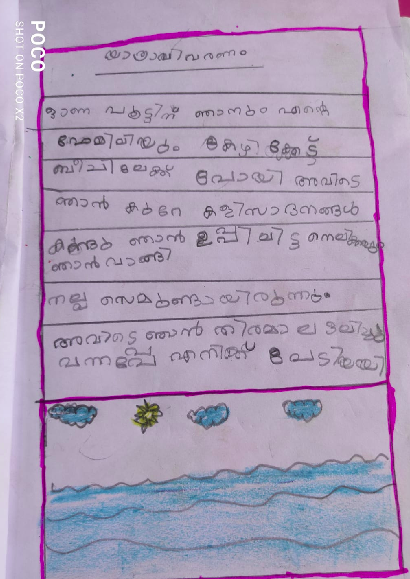 യാത്രാവിവരണം
ഓണ പൂട്ടിന് ഞാനും എന്റെ
ഫേമിലിയും കോഴിക്കോട്ട്
ബീചിലേക്ക് പോയി അവിടെ
ഞാൻ കുറേ കളിസാദനങ്ങൾ
കണ്ടും ഞാൻ ഉപ്പിലിട്ട
ഞാൻ വാങ്ങി
നല്ല രസമുണ്ടായിരുന്നും
അവിടെ ഞാൻ തിരമാല
വന്നപ്പേ എനിക്ക് പേടിയായി
POCO
SHOT ON POCO X2